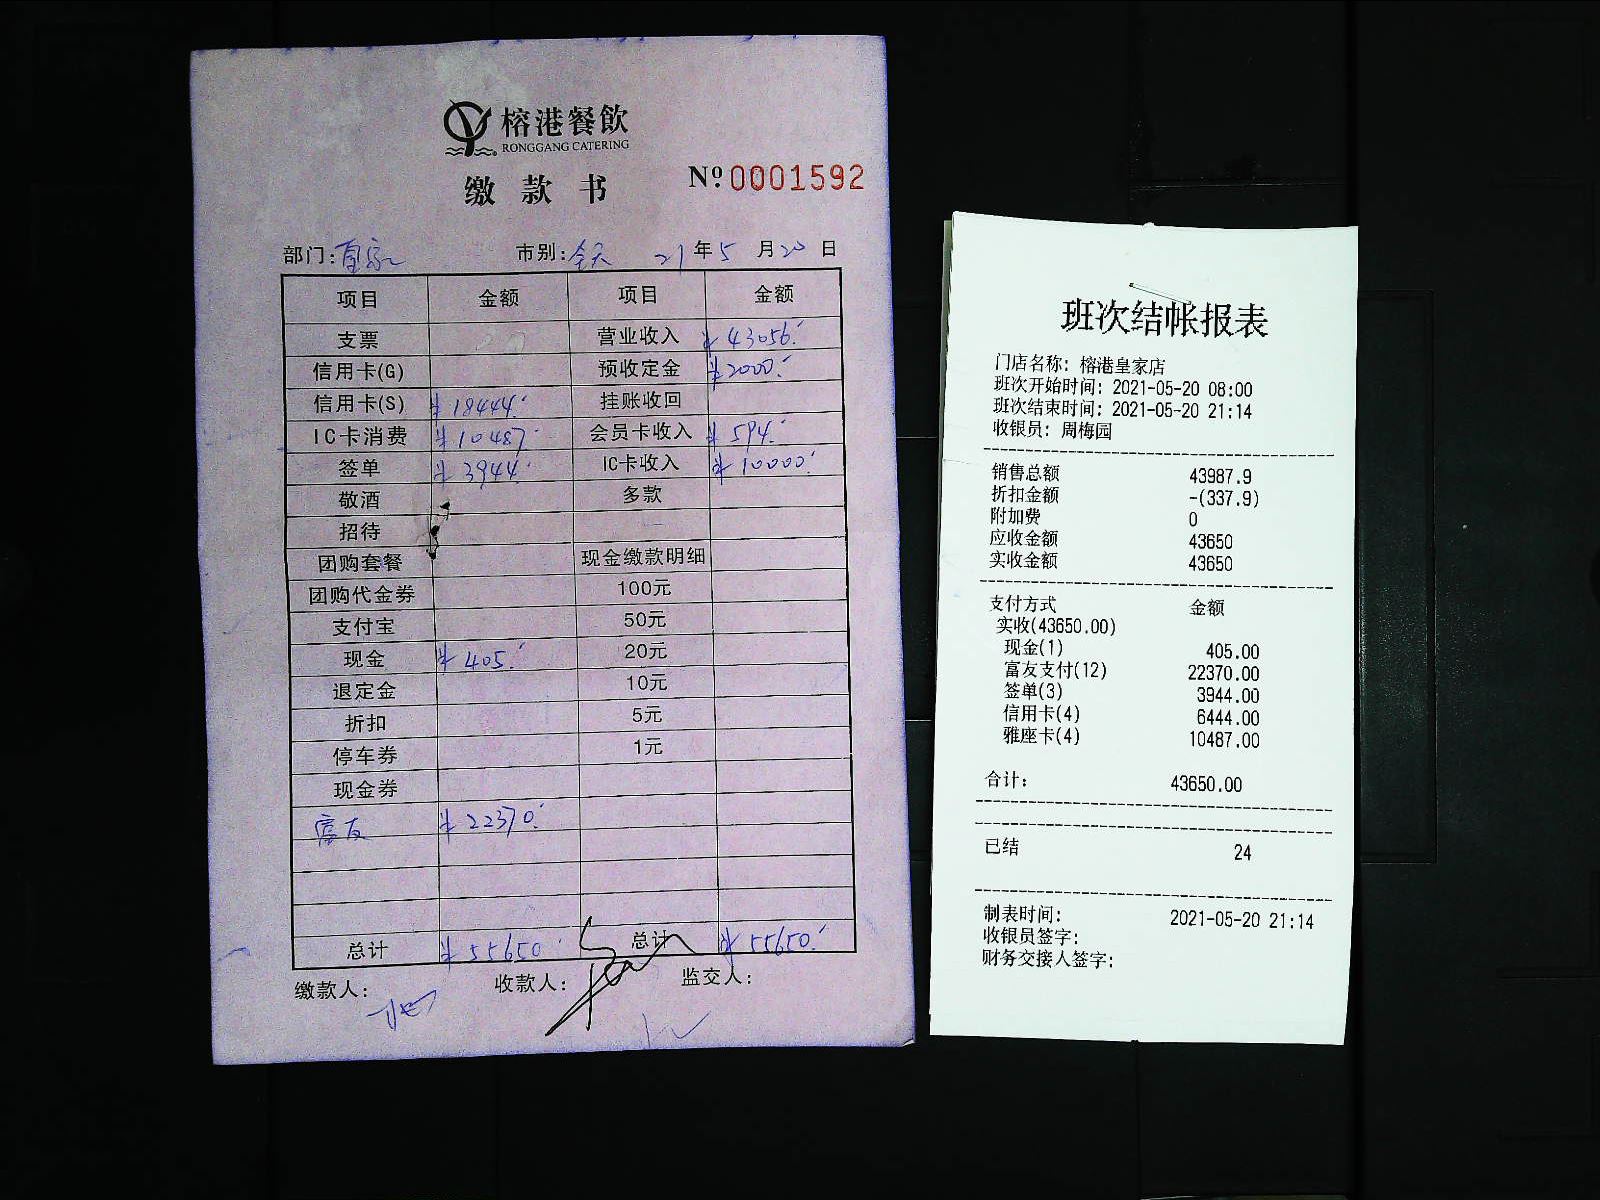 榕港餐飲
RONGGANG CATERING
缴款书
№0001592
部门:皇家 市别:全天 21年5月20日
项目 金额 项目 金额
支票 营业收入 ¥43056.
信用卡(G) 预收定金 ¥2000.
信用卡(S) ¥18444. 挂账收回
IC卡消费 ¥10487. 会员卡收入 ¥594.
签单 ¥3944. IC卡收入 ¥10000.
敬酒 多款
招待
团购套餐 现金缴款明细
团购代金券 100元
支付宝 50元
现金 ¥405. 20元
退定金 10元
折扣 5元
停车券 1元
现金券
富友 ¥22370.
总计 ¥55650. 总计 ¥55650.
缴款人: 收款人: 监交人:
班次结帐报表
门店名称: 榕港皇家店
班次开始时间: 2021-05-20 08:00
班次结束时间: 2021-05-20 21:14
收银员: 周梅园
销售总额 43987.9
折扣金额 -(337.9)
附加费 0
应收金额 43650
实收金额 43650
支付方式 金额
实收(43650.00)
现金(1) 405.00
富友支付(12) 22370.00
签单(3) 3944.00
信用卡(4) 6444.00
雅座卡(4) 10487.00
合计: 43650.00
已结 24
制表时间: 2021-05-20 21:14
收银员签字:
财务交接人签字: